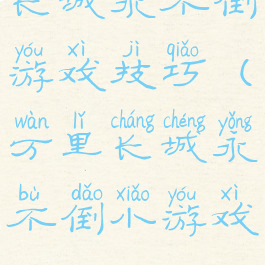 长城永不倒
yóu xì jì qiǎo
游戏技巧（
wàn lǐ cháng chéng yǒng
万里长城永
bù dǎo xiǎo yóu xì
不倒小游戏